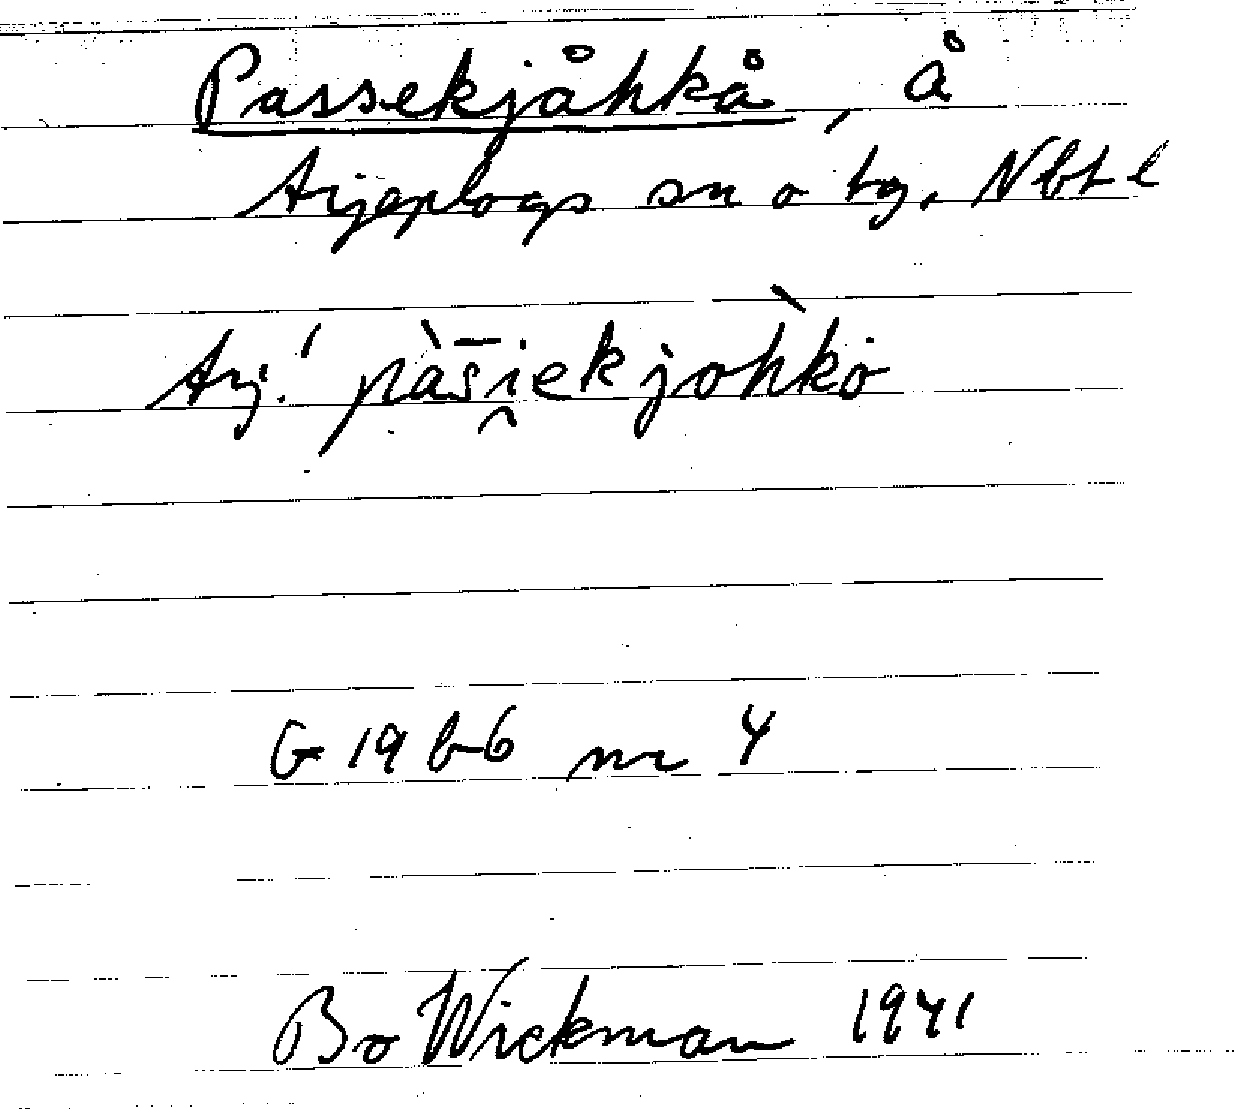 Passekjåhkå, å
Arjeplogs sn o tg. Nbt l
Arj. ˈpàs̄i̯ekjòhkȯ
G 19 b-6 nr 4
Bo Wickman 1941